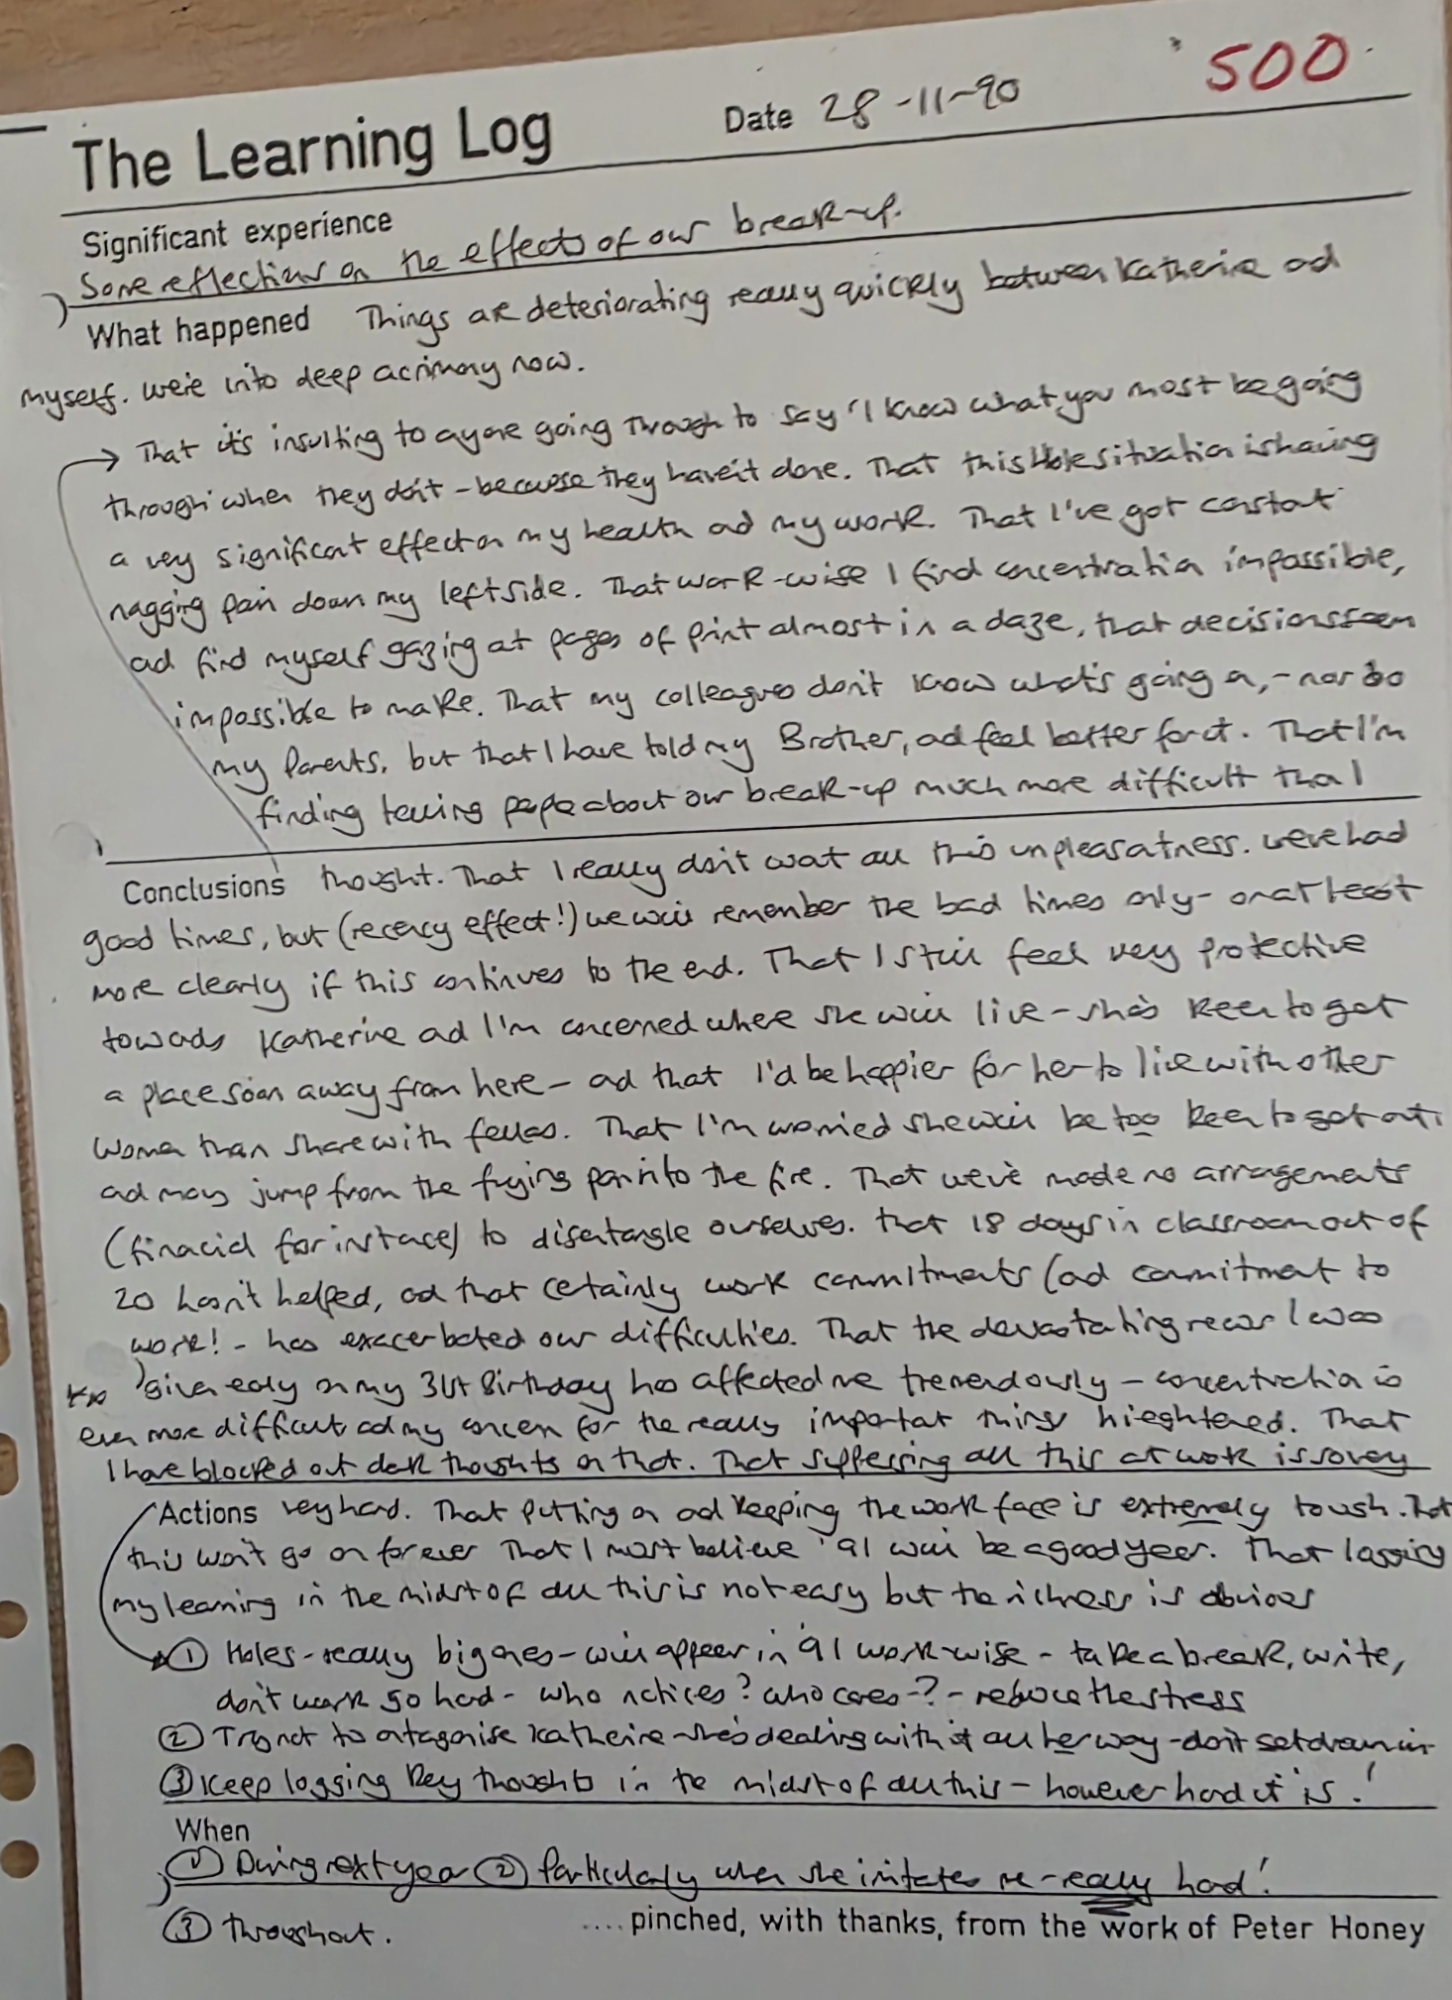 500
The Learning Log Date 28-11-90
Significant experience
Some reflections on the effects of our break-up.
What happened Things are deteriorating really quickly between Katherine and
myself. We're into deep acrimony now.
→ That it's insulting to anyone going through to say 'I know what you must be going
through' when they don't - because they haven't done. That this whole situation is having
a very significant effect on my health and my work. That I've got constant
nagging pain down my left side. That work-wise I find concentration impossible,
and find myself gazing at pages of print almost in a daze, that decisions seem
impossible to make. That my colleagues don't know what's going on, - nor do
my Parents, but that I have told my Brother, and feel better for it. That I'm
finding telling people about our break-up much more difficult than I
Conclusions thought. That I really don't want all this unpleasantness. We've had
good times, but (recency effect!) we will remember the bad times only - or at least
more clearly if this continues to the end. That I still feel very protective
towards Katherine and I'm concerned where she will live - she's keen to get
a place soon away from here - and that I'd be happier for her to live with other
women than share with fellas. That I'm worried she will be too keen to get out,
and may jump from the frying pan into the fire. That we've made no arrangements
(financial for instance) to disentangle ourselves. That 18 days in classroom out of
20 hasn't helped, and that certainly work commitments (and commitment to
work! - has exacerbated our difficulties. That the devastating news I was
given early on my 31st Birthday has affected me tremendously - concentration is
even more difficult and my concern for the really important things hieghtened. That
I have blocked out dark thoughts on that. That suppressing all this at work is so very
Actions very hard. That putting on and keeping the work face is extremely tough. That
this won't go on forever That I must believe '91 will be a good year. That logging
my learning in the midst of all this is not easy but the richness is obvious
① Holes - really big ones - will appear in '91 work-wise - take a break, write,
don't work so hard - who notices? who cares -? - reduce the stress
② Try not to antagonise Katherine - she's dealing with it all her way - don't get drawn in
③ Keep logging key thoughts in the midst of all this - however hard it is!
When
① During next year ② Particularly when she irritates me - really hard!
③ Throughout. .... pinched, with thanks, from the work of Peter Honey